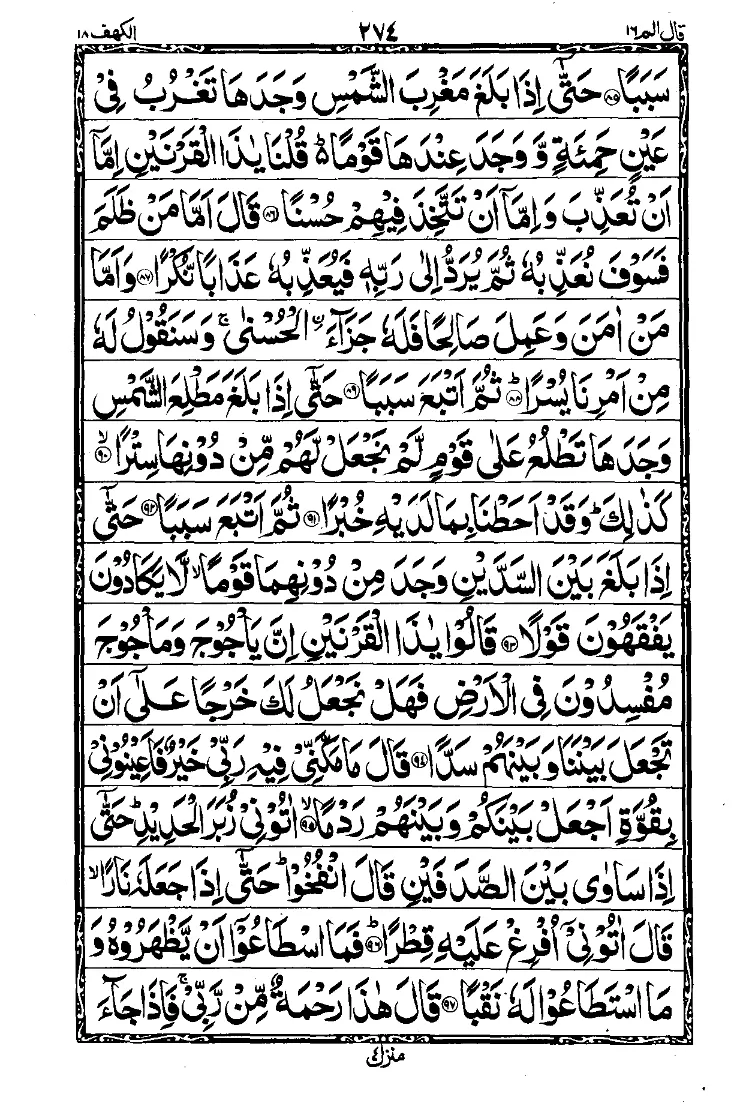 قال الم ١٦
٢٧٤
الكهف ١٨
سَبَبًا ﴿٨٥﴾ حَتّٰۤى اِذَا بَلَغَ مَغْرِبَ الشَّمْسِ وَجَدَهَا تَغْرُبُ فِیْ
عَیْنٍ حَمِئَةٍ وَّ وَجَدَ عِنْدَهَا قَوْمًا ؕ۬ قُلْنَا یٰذَا الْقَرْنَیْنِ اِمَّاۤ
اَنْ تُعَذِّبَ وَ اِمَّاۤ اَنْ تَتَّخِذَ فِیْهِمْ حُسْنًا ﴿٨٦﴾ قَالَ اَمَّا مَنْ ظَلَمَ
فَسَوْفَ نُعَذِّبُهٗ ثُمَّ یُرَدُّ اِلٰی رَبِّهٖ فَیُعَذِّبُهٗ عَذَابًا نُّكْرًا ﴿٨٧﴾ وَ اَمَّا
مَنْ اٰمَنَ وَ عَمِلَ صَالِحًا فَلَهٗ جَزَآءَ ۨالْحُسْنٰی ۚ وَ سَنَقُوْلُ لَهٗ
مِنْ اَمْرِنَا یُسْرًا ؕ﴿٨٨﴾ ثُمَّ اَتْبَعَ سَبَبًا ﴿٨٩﴾ حَتّٰۤى اِذَا بَلَغَ مَطْلِعَ الشَّمْسِ
وَجَدَهَا تَطْلُعُ عَلٰی قَوْمٍ لَّمْ نَجْعَلْ لَّهُمْ مِّنْ دُوْنِهَا سِتْرًا ﴿٩٠﴾ۙ
كَذٰلِكَ ؕ وَ قَدْ اَحَطْنَا بِمَا لَدَیْهِ خُبْرًا ﴿٩١﴾ ثُمَّ اَتْبَعَ سَبَبًا ﴿٩٢﴾ حَتّٰۤى
اِذَا بَلَغَ بَیْنَ السَّدَّیْنِ وَجَدَ مِنْ دُوْنِهِمَا قَوْمًا ۙ لَّا یَكَادُوْنَ
یَفْقَهُوْنَ قَوْلًا ﴿٩٣﴾ قَالُوْا یٰذَا الْقَرْنَیْنِ اِنَّ یَاْجُوْجَ وَ مَاْجُوْجَ
مُفْسِدُوْنَ فِی الْاَرْضِ فَهَلْ نَجْعَلُ لَكَ خَرْجًا عَلٰۤى اَنْ
تَجْعَلَ بَیْنَنَا وَ بَیْنَهُمْ سَدًّا ﴿٩٤﴾ قَالَ مَا مَكَّنِّیْ فِیْهِ رَبِّیْ خَیْرٌ فَاَعِیْنُوْنِیْ
بِقُوَّةٍ اَجْعَلْ بَیْنَكُمْ وَ بَیْنَهُمْ رَدْمًا ﴿٩٥﴾ۙ اٰتُوْنِیْ زُبَرَ الْحَدِیْدِ ؕ حَتّٰۤى
اِذَا سَاوٰی بَیْنَ الصَّدَفَیْنِ قَالَ انْفُخُوْا ؕ حَتّٰۤى اِذَا جَعَلَهٗ نَارًا ۙ
قَالَ اٰتُوْنِیْۤ اُفْرِغْ عَلَیْهِ قِطْرًا ؕ﴿٩٦﴾ فَمَا اسْطَاعُوْۤا اَنْ یَّظْهَرُوْهُ وَ
مَا اسْتَطَاعُوْا لَهٗ نَقْبًا ﴿٩٧﴾ قَالَ هٰذَا رَحْمَةٌ مِّنْ رَّبِّیْ ۚ فَاِذَا جَآءَ
منزل ٤